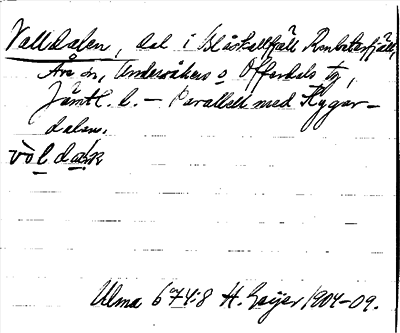 Valldalen, dal i Blåskallfjäll Renbetesfjäll,
Åre sn, Undersåkers o Offerdals tg,
Jämtl. l. – Parallell med Hygar-
dalen.
vòl da
Ulma 674:8 H. Geijer 1904-09.